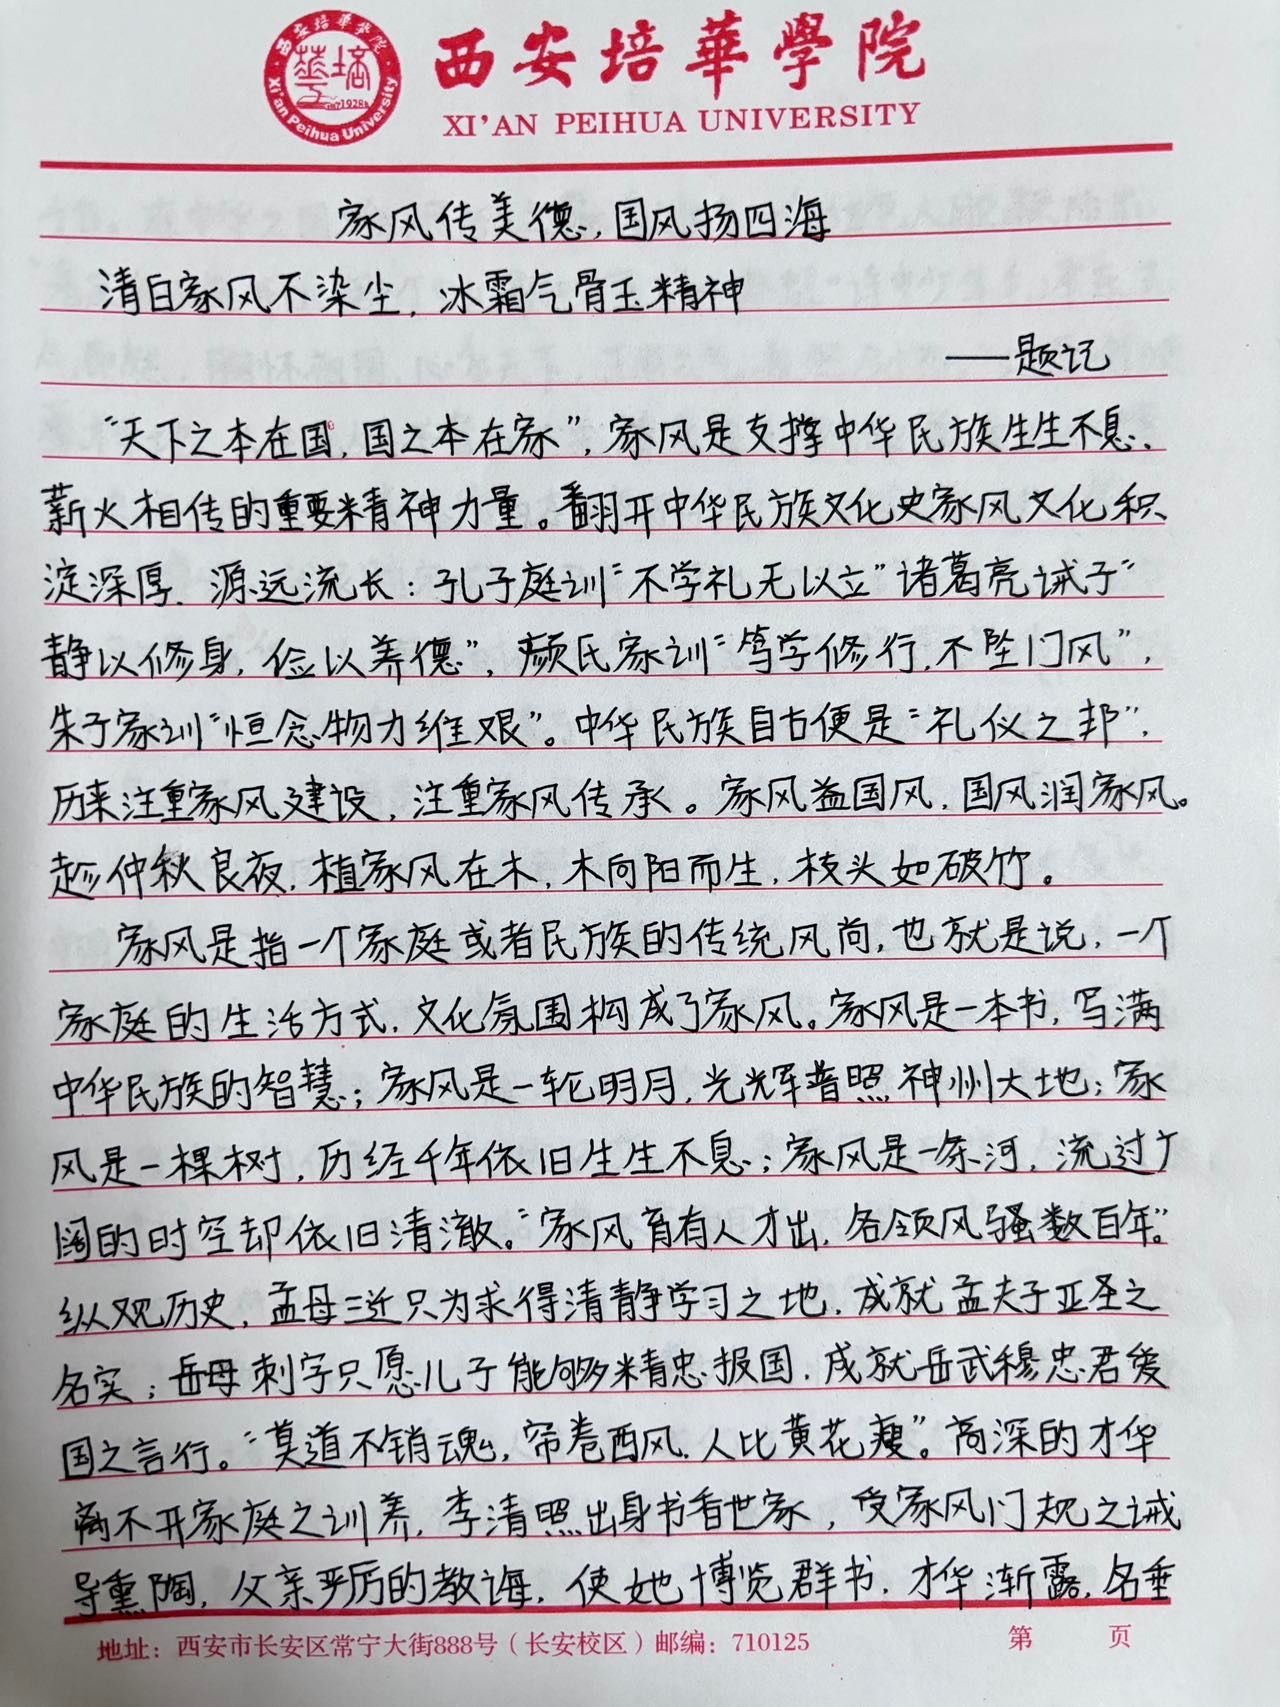 西安培華學院
XI'AN PEIHUA UNIVERSITY
西安培華學院
1928
Xi'an Peihua University
家风传美德，国风扬四海
清白家风不染尘，冰霜气骨玉精神
——题记
“天下之本在国，国之本在家”，家风是支撑中华民族生生不息、
薪火相传的重要精神力量。翻开中华民族文化史家风文化积
淀深厚、源远流长：孔子庭训“不学礼无以立”诸葛亮诫子“
静以修身，俭以养德”，颜氏家训“笃学修行，不坠门风”，
朱子家训“恒念物力维艰”。中华民族自古便是“礼仪之邦”，
历来注重家风建设，注重家风传承。家风益国风，国风润家风。
趁仲秋良夜，植家风在木，木向阳而生，枝头如破竹。
家风是指一个家庭或者民族的传统风尚，也就是说，一个
家庭的生活方式，文化氛围构成了家风。家风是一本书，写满
中华民族的智慧；家风是一轮明月，光辉普照神州大地；家
风是一棵树，历经千年依旧生生不息；家风是一条河，流过广
阔的时空却依旧清澈。“家风育有人才出，各领风骚数百年。”
纵观历史，孟母三迁只为求得清静学习之地，成就孟夫子亚圣之
名实；岳母刺字只愿儿子能够精忠报国，成就岳武穆忠君爱
国之言行。“莫道不销魂，帘卷西风，人比黄花瘦”。高深的才华
离不开家庭之训养，李清照出身书香世家，受家风门规之诫
导熏陶，父亲严厉的教诲，使她博览群书，才华渐露，名垂
地址：西安市长安区常宁大街888号（长安校区）邮编：710125
第 页